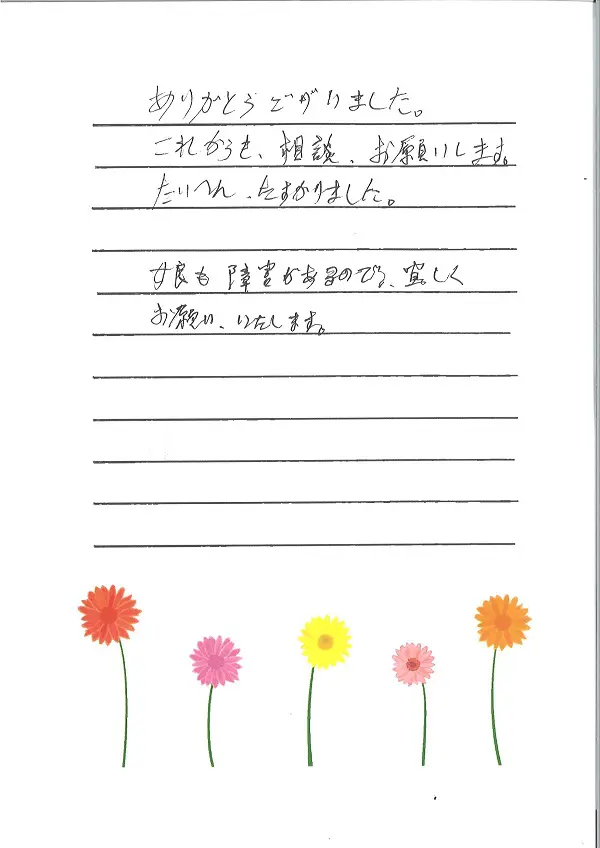 ありがとうござりました。
これからも、相談、お願いします。
たいへん、たすかりました。
娘も障害があるので、宜しく
お願い、いたします。